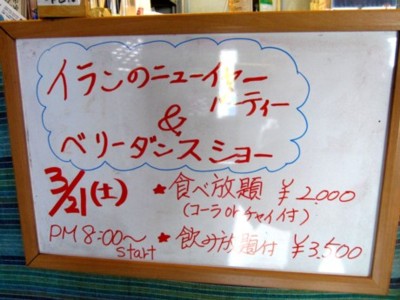 イランのニューイヤー
パーティー
&
ベリーダンスショー
3/21(土) ★食べ放題 ¥2,000
(コーラorチャイ付)
PM 8:00〜 ★飲み放題付 ¥3,500
start